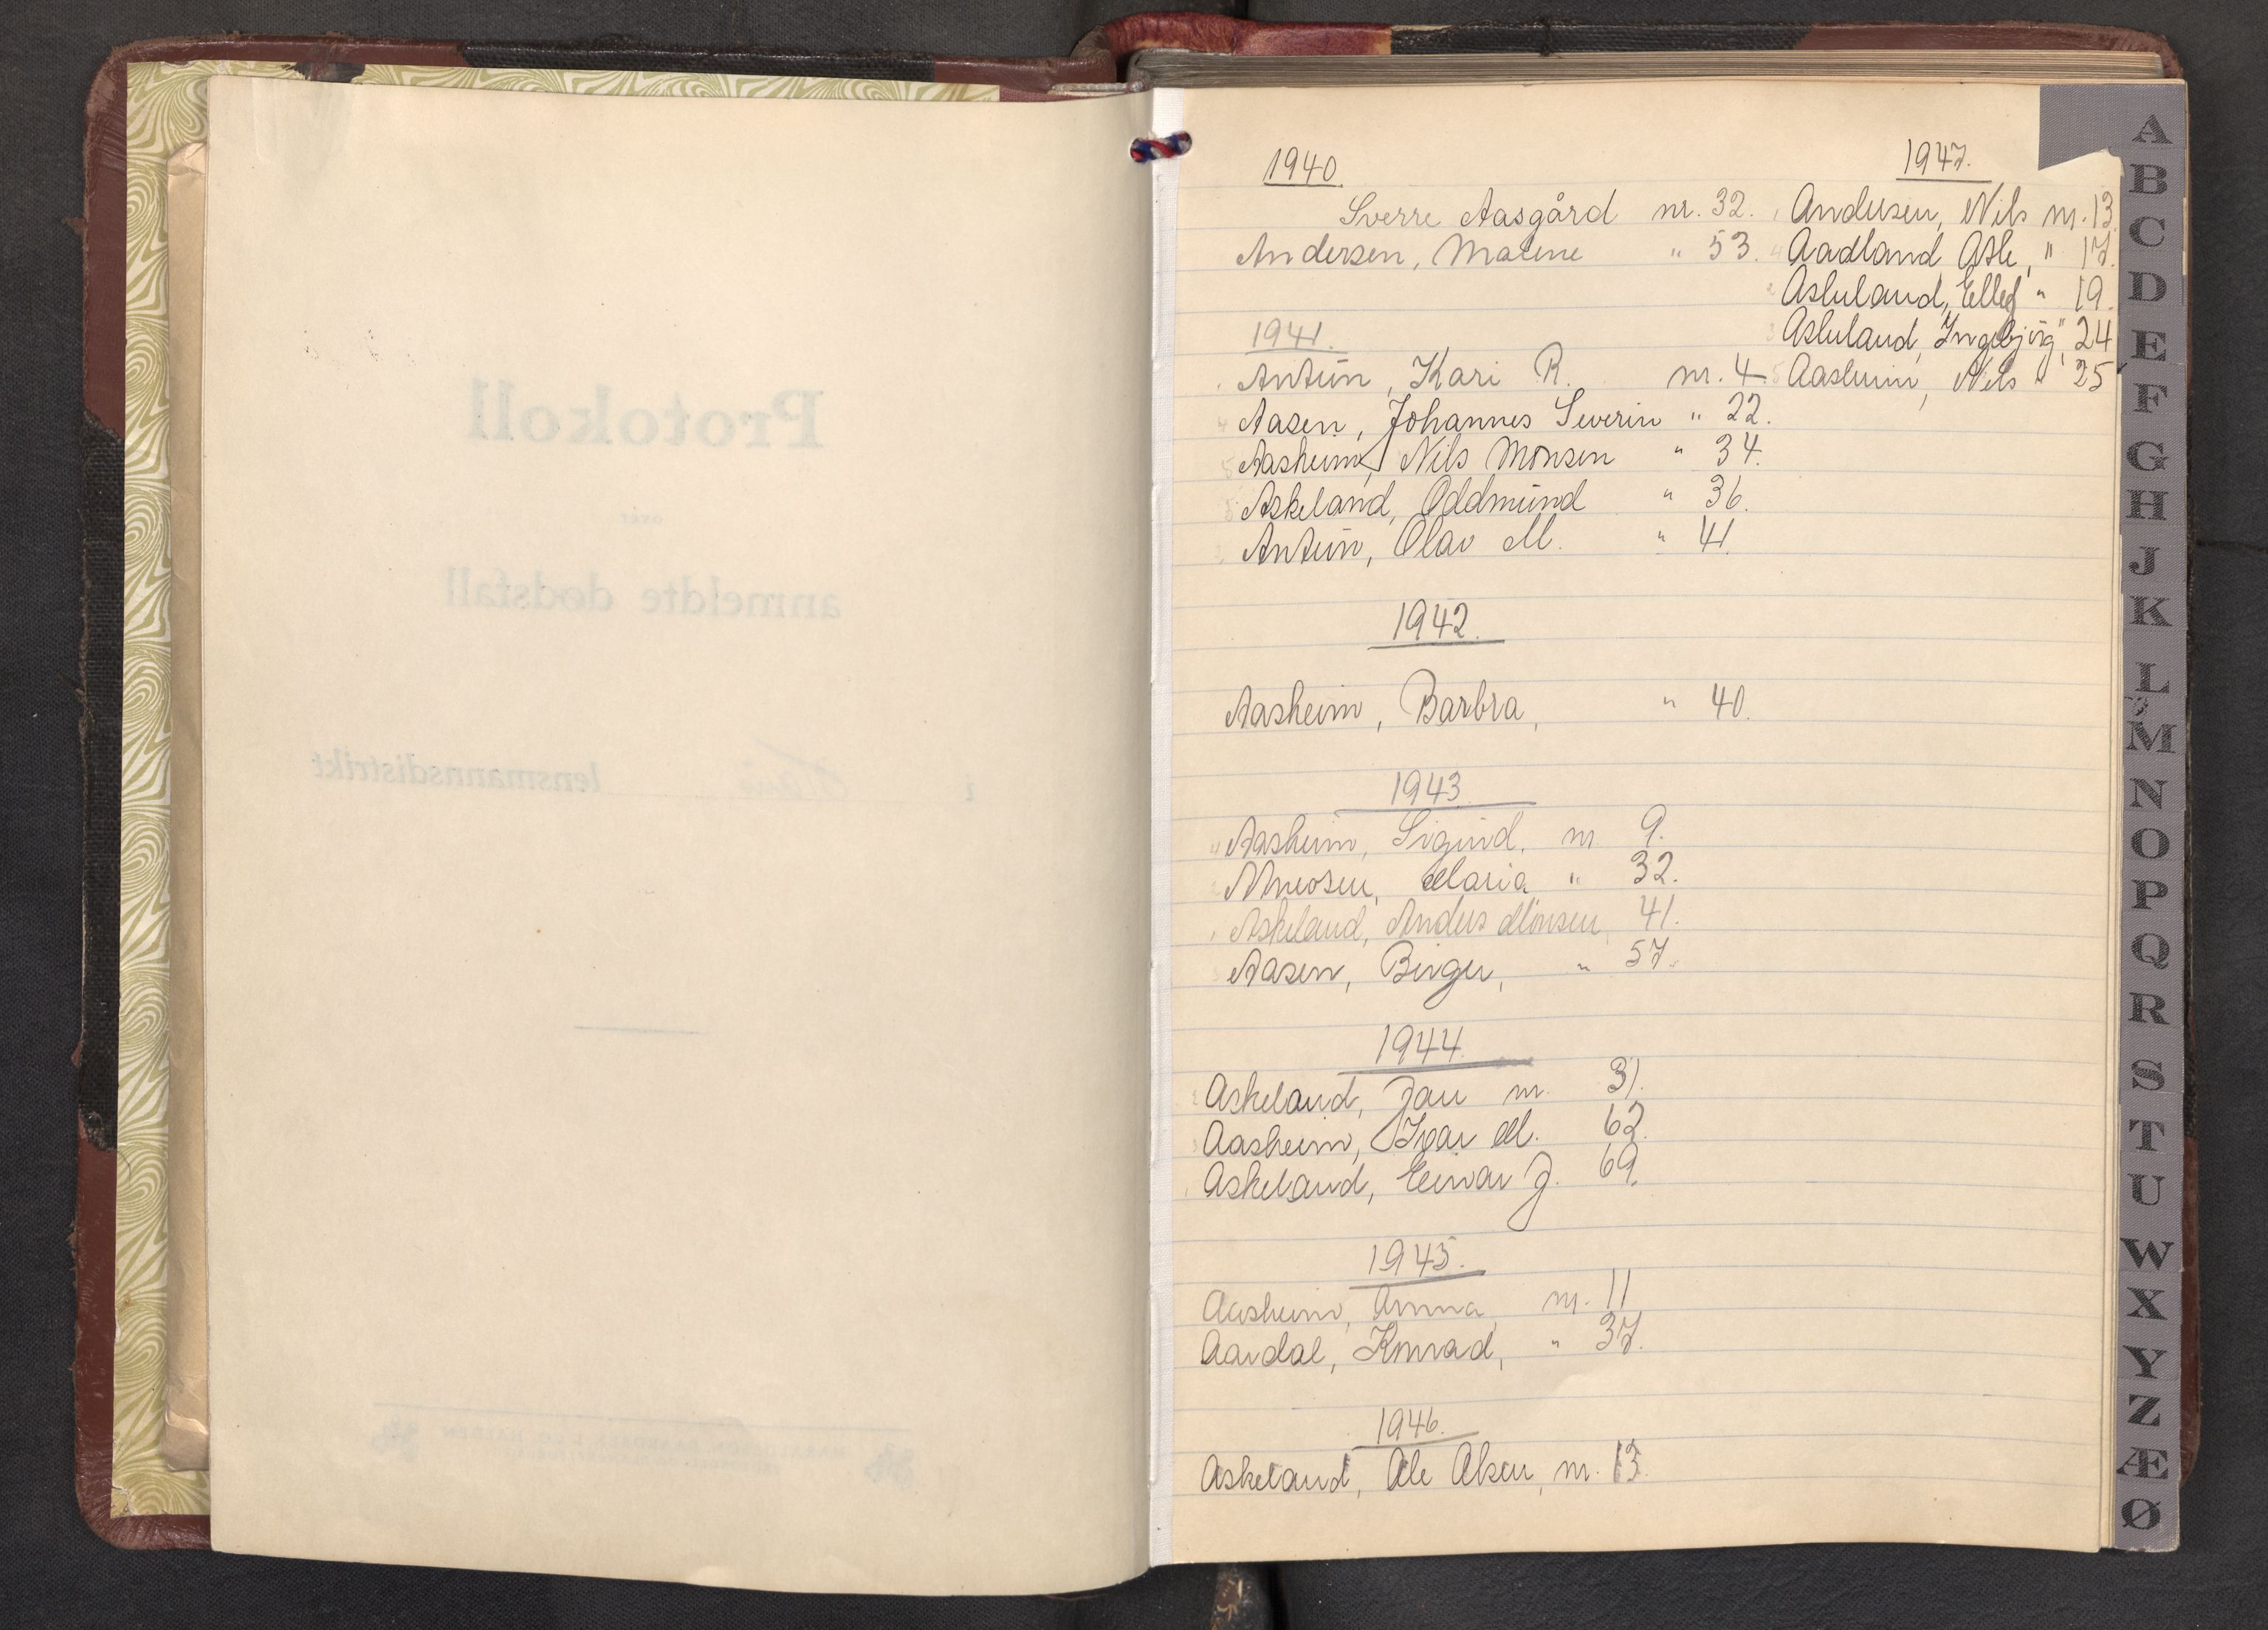 Protokoll
over
anmeldte dødsfall
i lensmannsdistrikt
1940
Sverre Aasgård nr. 32.
Andersen, Malene " 53.
1941.
Antun, Kari R. nr. 4
Aasen, Johannes Severin " 22.
Aasheim, Nils Monsen " 34.
Askeland, Oddmund " 36.
Antun, Olav M. " 41.
1942.
Aasheim, Barbra, " 40.
1943
Aasheim, Sigurd, nr. 9.
Maria " 32.
Askeland, Anders Monsen, 41.
Aasen, Birger, " 57.
1944
Askeland, Jan nr. 31.
Aasheim, Ivar M. 62.
Askeland, Einar J. 69.
1945.
Aasheim, Anna, nr. 11
Aardal, Konrad, " 37.
1946.
Askeland, Ole Olsen, nr. 13.
1947.
Andersen, Nils nr. 13.
Aadland Atle, " 17.
Askeland, Ellef " 19.
Askeland, Ingebjørg " 24
Aasheim, Nils " 25
A
B
C
D
E
F
G
H
J
K
L
M
N
O
P
Q
R
S
T
U
W
X
Y
Z
Æ
Ø